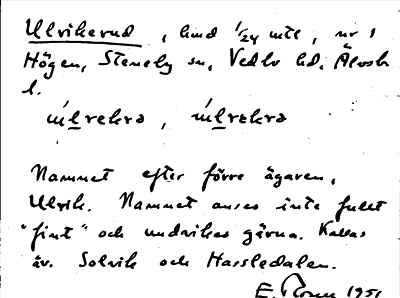 Ulrikerud, hmd 1/24 mtl, nr 1
Högen, Steneby sn, Vedbo hd, Älvsb
l.
Namnet efter förre ägaren,
Ulrik. Namnet anses inte fullt
"fint" och undvikes gärna. Kallas
äv. Solvik och Hassledalen.
E. 1951